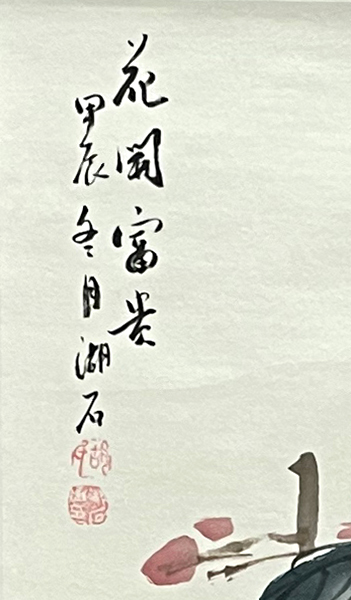 花開富贵
甲辰冬月湖石